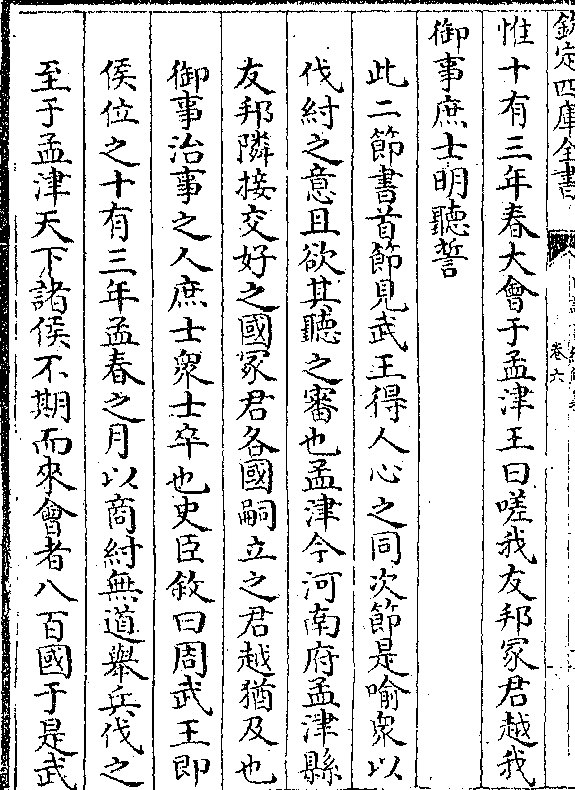 欽定四庫全書
卷六
惟十有三年春大會于孟津王曰嗟我友邦冢君越我
御事庶士明聽誓
此二節書首節見武王得人心之同次節是喻衆以
伐紂之意且欲其聽之審也孟津今河南府孟津縣
友邦隣接交好之國冢君各國嗣立之君越猶及也
御事治事之人庶士衆士卒也史臣敘曰周武王即
侯位之十有三年孟春之月以商紂無道舉兵伐之
至于孟津天下諸侯不期而來會者八百國于是武